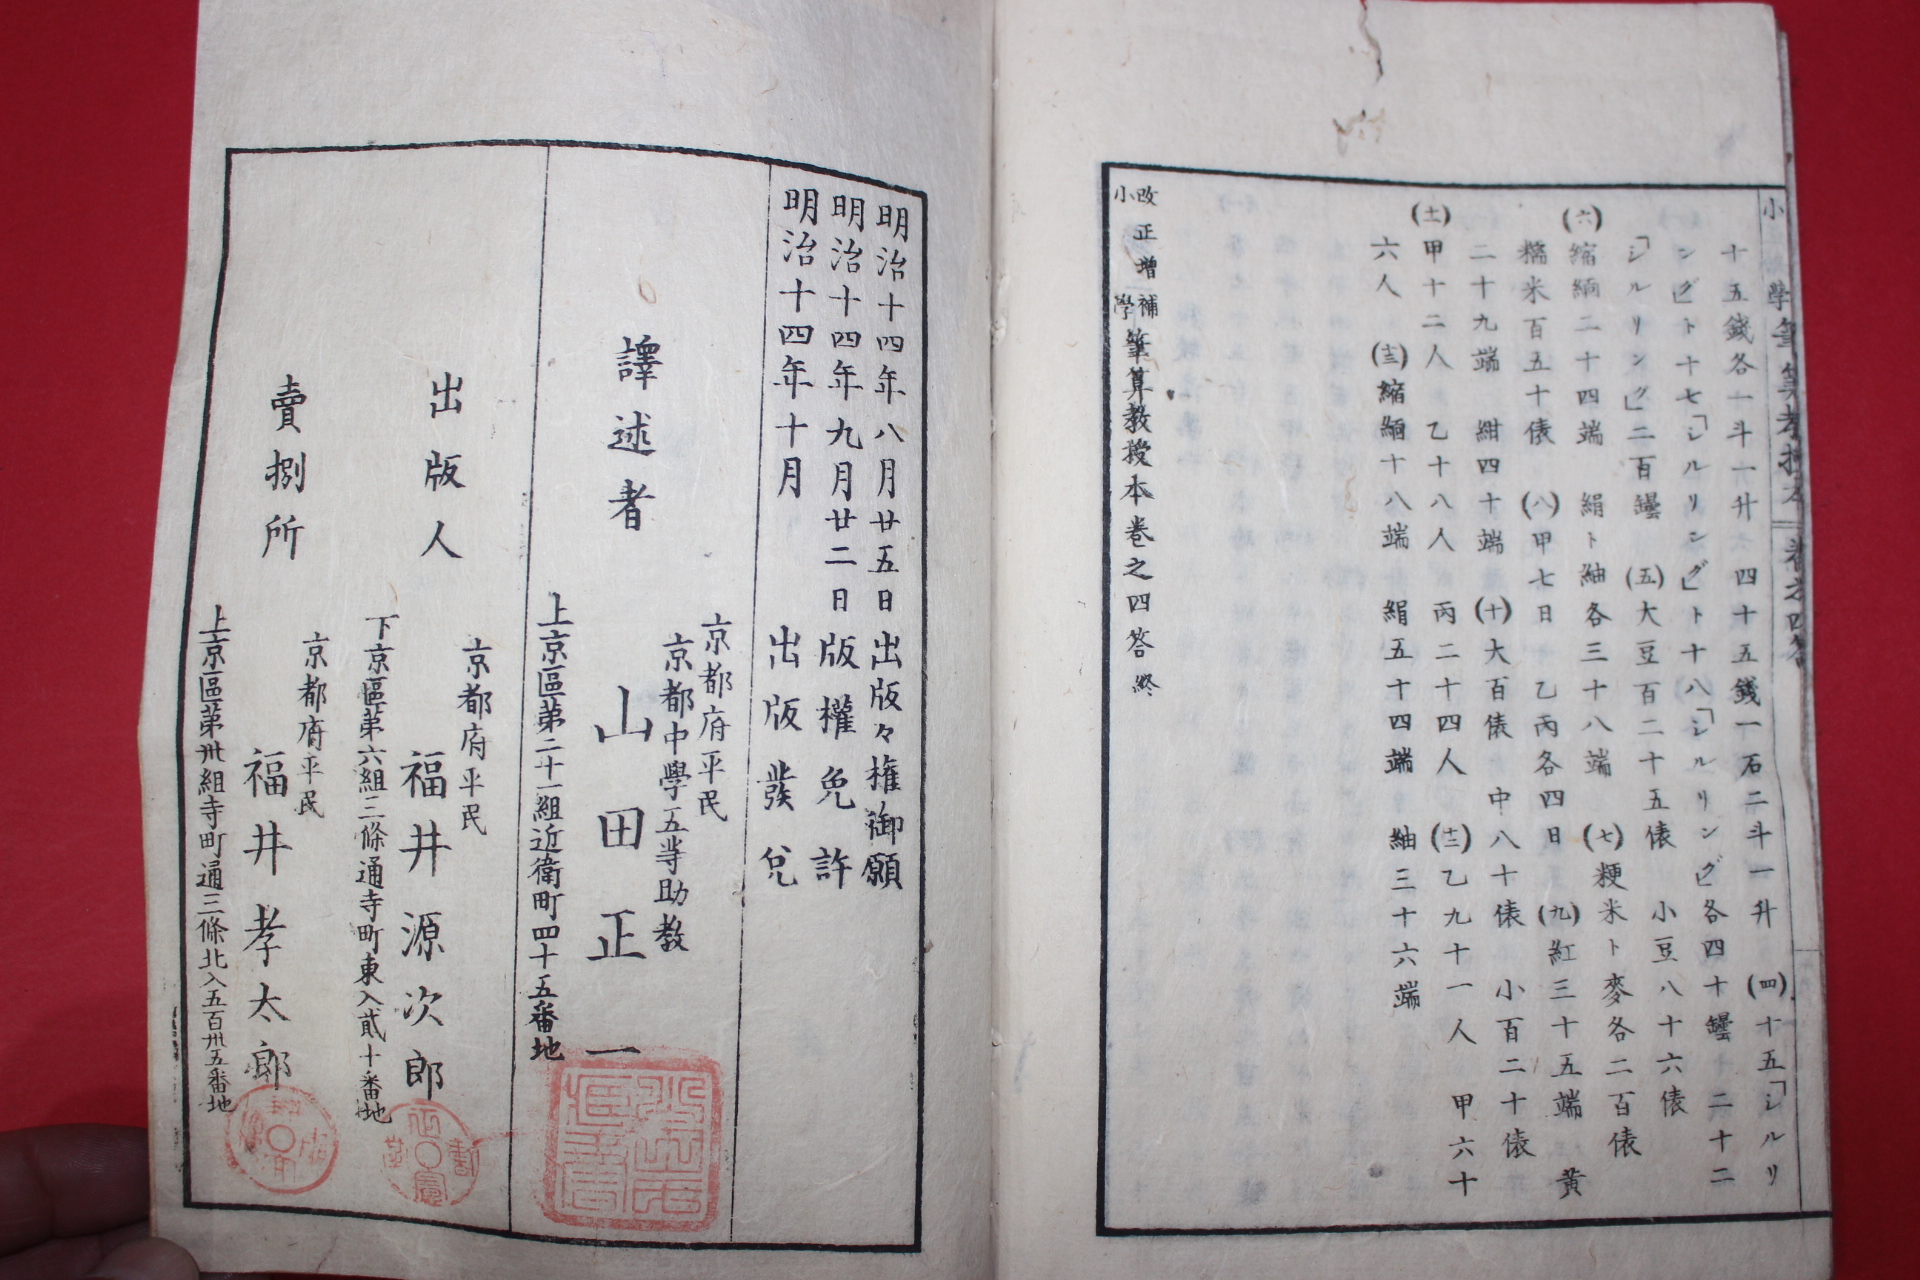 十五錢各一斗一升 四十五錢一石二斗一升 (四)十五「シルリ
ング」ト十七「シルリング」ト十八「シルリング」各四十罎 二十二
「シルリング」二百罎 (五)大豆百二十五俵 小豆八十六俵
(六)縮緬二十四端 絹ト紬各三十八端 (七)粳米ト麥各二百俵
糯米百五十俵 (八)甲七日 乙丙各四日 (九)紅三十五端 黄
二十九端 紺四十端 (十)大百俵 中八十俵 小百二十俵
(士)甲十二人 乙十八人 丙二十四人 (士二)乙九十一人 甲六十
六人 (士三)縮緬十八端 絹五十四端 紬三十六端
改正增補
小學筆算教授本卷之四答終
明治十四年八月廿五日出版々権御願
明治十四年九月廿二日版權免許
明治十四年十月 出版發兌
京都府平民
京都中學五等助教
譯述者 山田正一
上京區第二十一組近衛町四十五番地
京都府平民
出版人 福井源次郎
下京區第六組三條通寺町東入貳十番地
京都府平民
賣捌所 福井孝太郎
上京區第卅組寺町通三條北入五百卅五番地